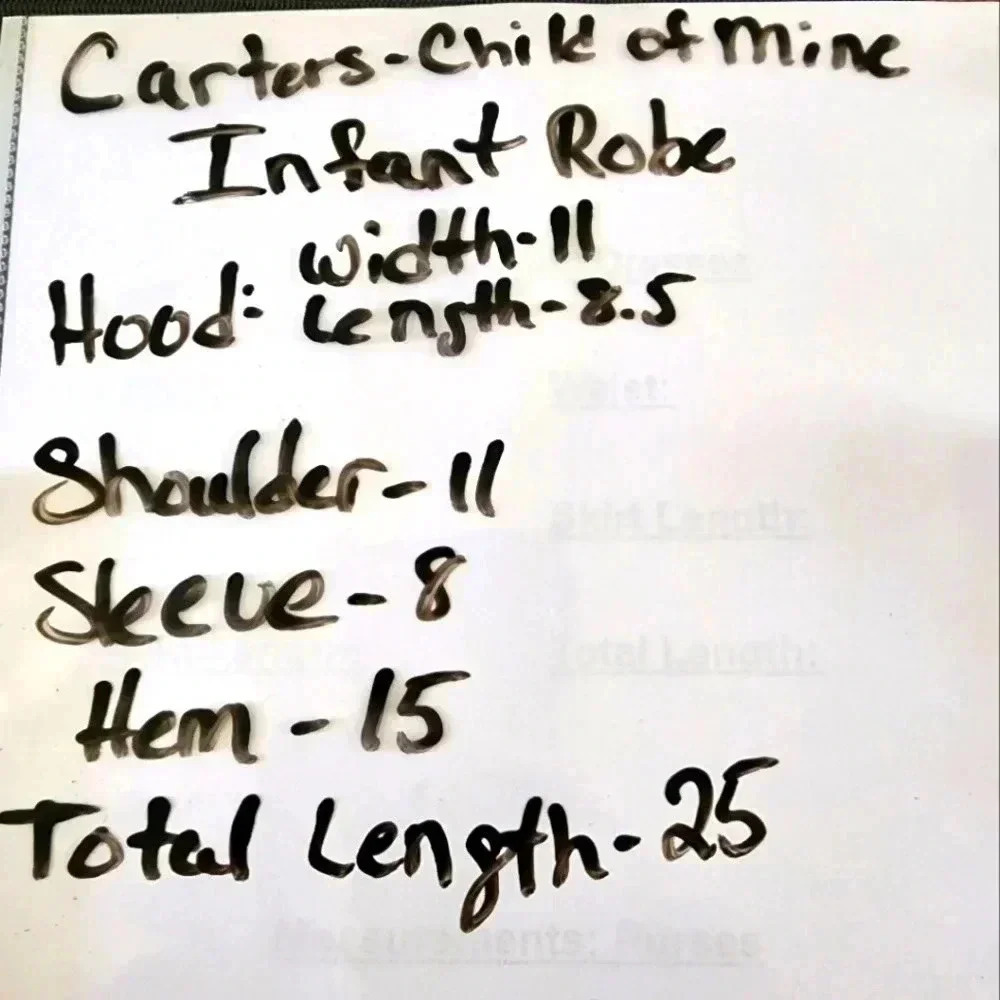 Carters-Child of Mine
Infant Robe
Hood: Width-11
Length-8.5
Shoulder-11
Sleeve-8
Hem-15
Total Length-25
Waist:
Skirt Length:
Total Length:
Measurements: Purses